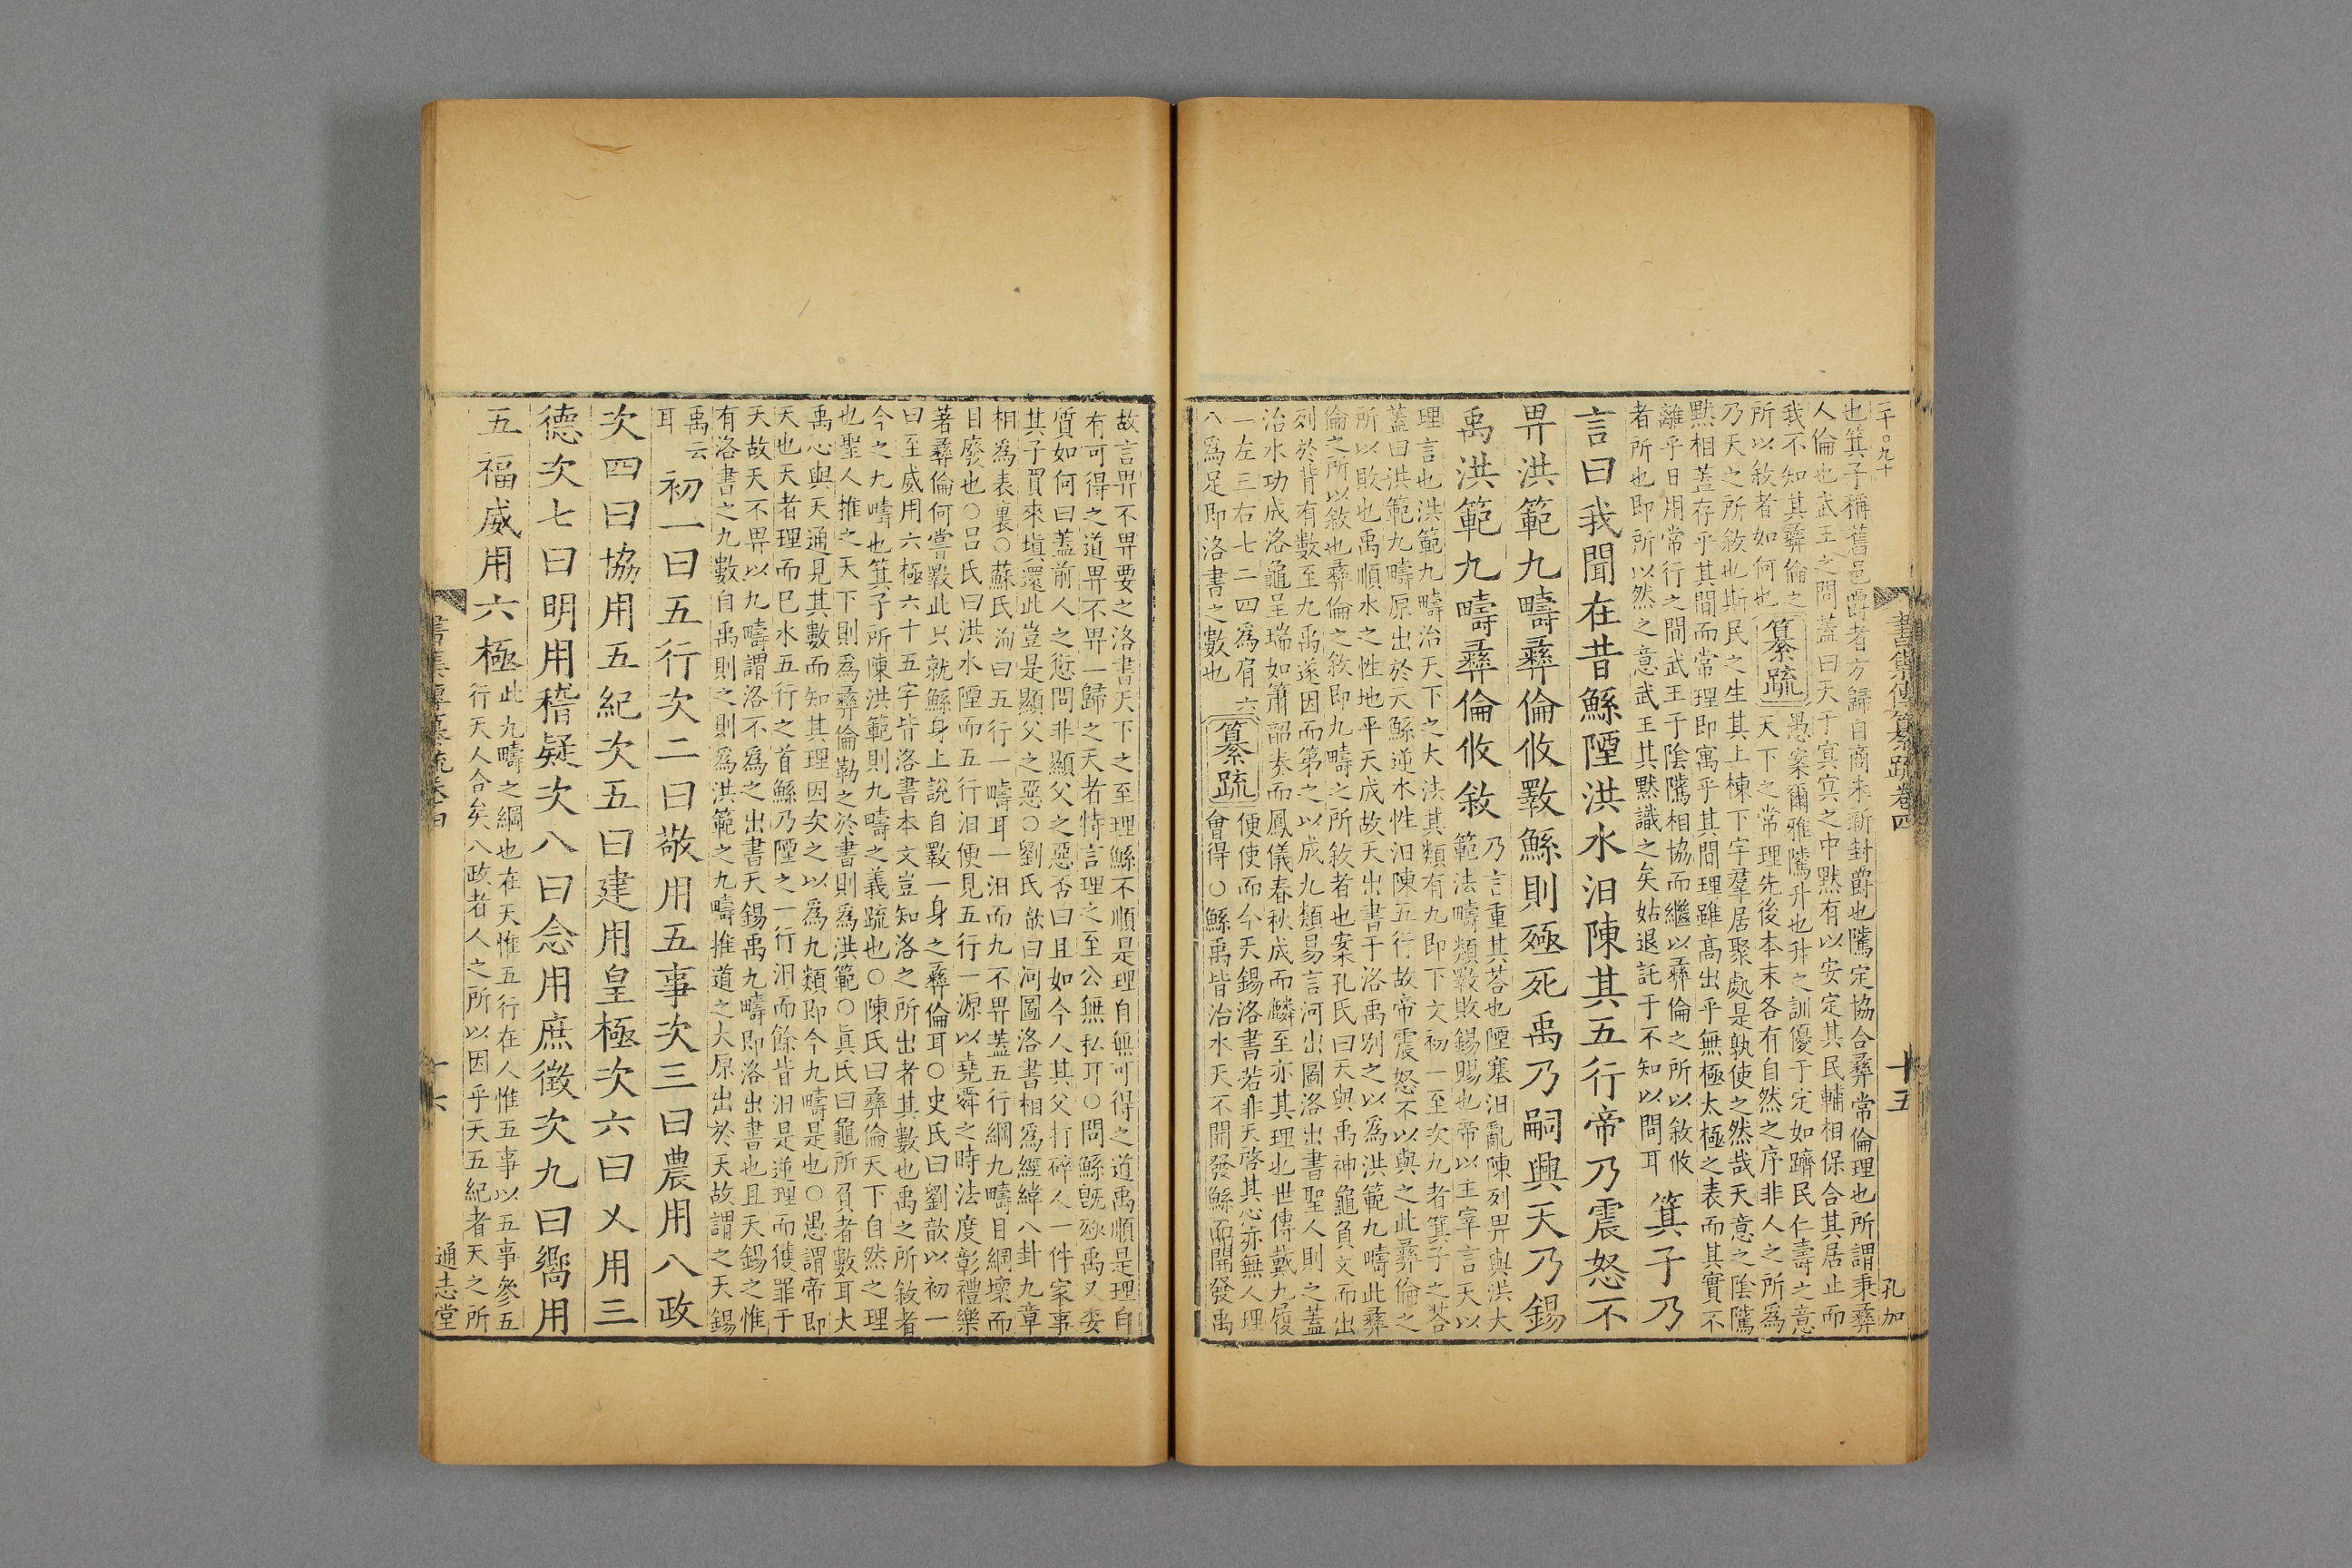 書集傳纂疏卷四
十五
孔加
也箕子稱舊邑爵者方歸自商未新封爵也隲定協合彝常倫理也所謂秉彝
人倫也武王之問蓋曰天于冥冥之中默有以安定其民輔相保合其居止而
我不知其彝倫之
所以敘者如何也
纂疏
愚案爾雅隲升也升之訓優于定如躋民仁壽之意
天下之常理先後本末各有自然之序非人之所爲
乃天之所敘也斯民之生其上棟下宇羣居聚處是孰使之然哉天意之陰隲
默相蓋存乎其間而常理即寓乎其間理雖高出乎無極太極之表而其實不
離乎日用常行之間武王于陰隲相協而繼以彝倫之所以敘攸
者所也即所以然之意武王其默識之矣姑退託于不知以問耳
箕子乃
言曰我聞在昔鯀陻洪水汩陳其五行帝乃震怒不
畀洪範九疇彝倫攸斁鯀則殛死禹乃嗣興天乃錫
禹洪範九疇彝倫攸敘
乃言重其荅也陻塞汩亂陳列畀與洪大
範法疇類斁敗錫賜也帝以主宰言天以
理言也洪範九疇治天下之大法其類有九即下文初一至次九者箕子之荅
蓋曰洪範九疇原出於天鯀逆水性汩陳五行故帝震怒不以與之此彝倫之
所以敗也禹順水之性地平天成故天出書于洛禹別之以爲洪範九疇此彝
倫之所以敘也彝倫之敘即九疇之所敘者也案孔氏曰天與禹神龜負文而出
列於背有數至九禹遂因而第之以成九類易言河出圖洛出書聖人則之蓋
治水功成洛龜呈瑞如簫韶奏而鳳儀春秋成而麟至亦其理也世傳戴九履
一左三右七二四爲肩六
八爲足即洛書之數也
纂疏
便使而今天錫洛書若非天啓其心亦無人理
會得○鯀禹皆治水天不開發鯀而開發禹
故言畀不畀要之洛書天下之至理鯀不順是理自無可得之道禹順是理自
有可得之道畀不畀一歸之天者特言理之至公無私耳○問鯀旣殛禹又委
質如何曰蓋前人之愆問非顯父之惡否曰且如今人其父打碎人一件家事
其子買來塡還此豈是顯父之惡○劉氏歆曰河圖洛書相爲經緯八卦九章
相爲表裏○蘇氏洵曰五行一疇耳一汩而九不畀蓋五行綱九疇目綱壞而
目廢也○呂氏曰洪水陻而五行汩便見五行一源以堯舜之時法度彰禮樂
著彝倫何嘗斁此只就鯀身上說自斁一身之彝倫耳○史氏曰劉歆以初一
曰至威用六極六十五字皆洛書本文豈知洛之所出者其數也禹之所敘者
今之九疇也箕子所陳洪範則九疇之義疏也○陳氏曰彝倫天下自然之理
也聖人推之天下則爲彝倫勒之於書則爲洪範○眞氏曰龜所負者數耳大
禹心與天通見其數而知其理因次之以爲九類即今九疇是也○愚謂帝即
天也天者理而已水五行之首鯀乃陻之一行汩而餘皆汩是逆理而獲罪于
天故天不畀以九疇謂洛不爲之出書天錫禹九疇即洛出書也且天錫之惟
有洛書之九數自禹則之則爲洪範之九疇推道之大原出於天故謂之天錫
禹云
耳
初一曰五行次二曰敬用五事次三曰農用八政
次四曰協用五紀次五曰建用皇極次六曰乂用三
德次七曰明用稽疑次八曰念用庶徵次九曰嚮用
五福威用六極
此九疇之綱也在天惟五行在人惟五事以五事參五
行天人合矣八政者人之所以因乎天五紀者天之所
通志堂